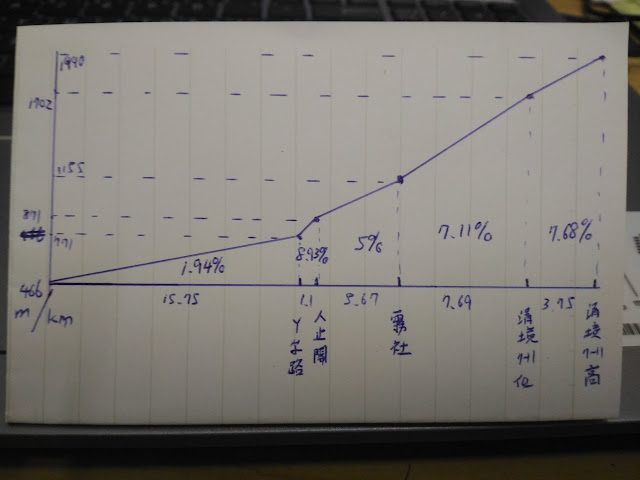 1990
1702
1155
871
771
466
m / km
1.94%
8.93%
5%
7.11%
7.68%
15.75
1.1
5.67
7.69
3.75
Y字路
人止関
霧社
清境7-11低
清境7-11高